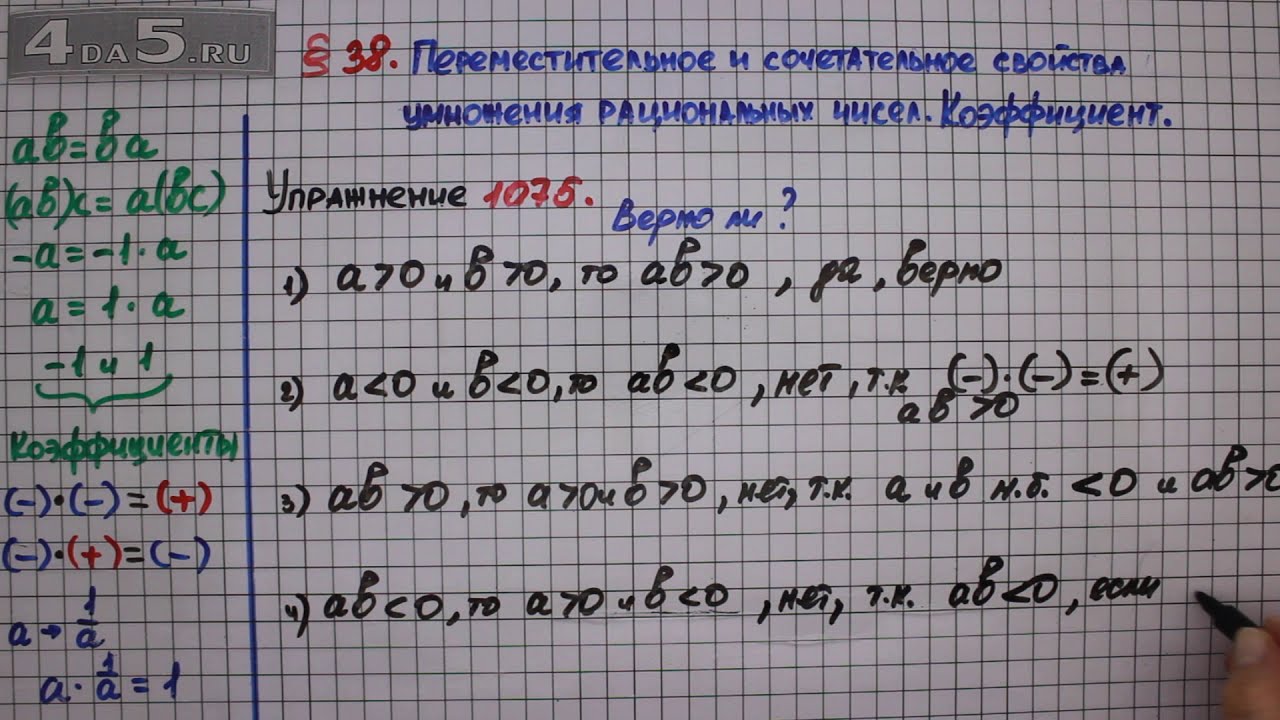 4DA5.RU
§ 38. Переместительное и сочетательное свойства
умножения рациональных чисел. Коэффициент.
ab=ba
(ab)c=a(bc)
-a=-1·a
a=1·a
-1 и 1
Коэффициенты
(-)·(-)=(+)
(-)·(+)=(-)
a→1/a
a·1/a=1
Упражнение 1075.
Верно ли?
1) a>0 и b>0, то ab>0, да, верно
2) a<0 и b<0, то ab<0, нет, т.к. (-)·(-)=(+)
ab>0
3) ab>0, то a>0 и b>0, нет, т.к. a и b м.б. <0 и ab>0
4) ab<0, то a>0 и b<0, нет, т.к. ab<0, если